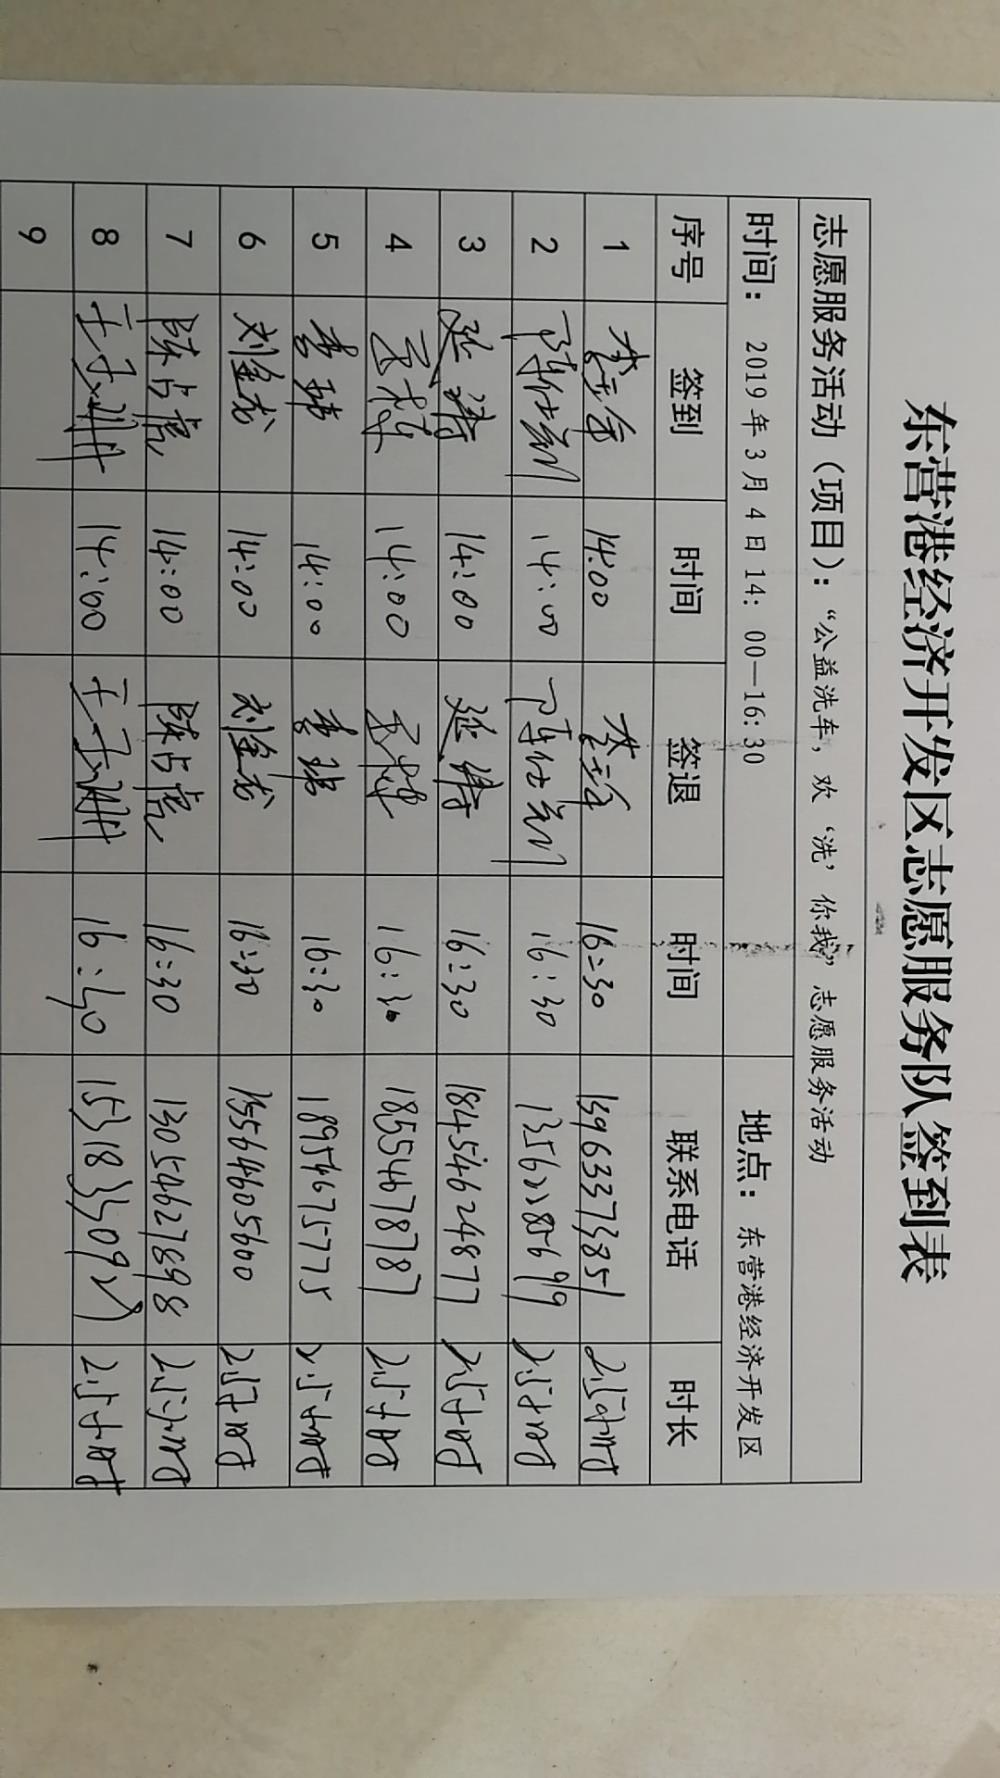 东营港经济开发区志愿服务队签到表
志愿服务活动（项目）：“公益洗车，欢‘洗’你我”志愿服务活动
时间： 2019年3月4日14：00—16:30 地点： 东营港经济开发区
序号 签到 时间 签退 时间 联系电话 时长
1 14:00 16:30 13963373851 2.5小时
2 14:00 16:30 2.5小时
3 延涛 14:00 延涛 16:30 18454624877 2.5小时
4 14:00 16:30 18554678787 2.5小时
5 李琳 14:00 李琳 16:30 18954675775 2.5小时
6 刘金龙 14:00 刘金龙 16:30 15564605600 2.5小时
7 陈占虎 14:00 陈占虎 16:30 13054627898 2.5小时
8 14:00 16:30 2.5小时
9